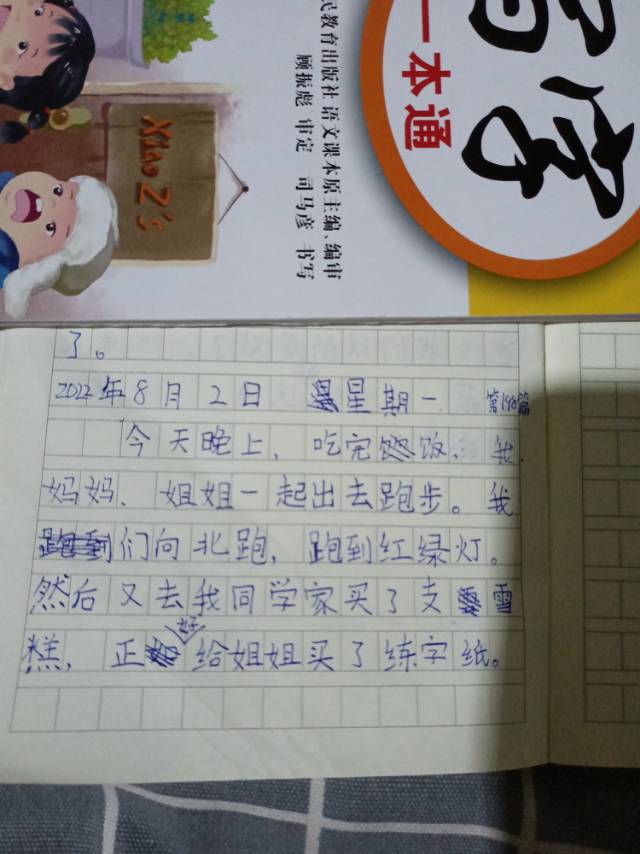 字
一本通
民教育出版社 语文课本原主编、编审
顾振彪 审定 司马彦 书写
Xiao Z's
了。
2022年8月2日 星期一
今天晚上，吃完饭，我、
妈妈、姐姐一起出去跑步。我
们向北跑，跑到红绿灯。
然后又去我同学家买了支雪
糕，正好给姐姐买了练字纸。